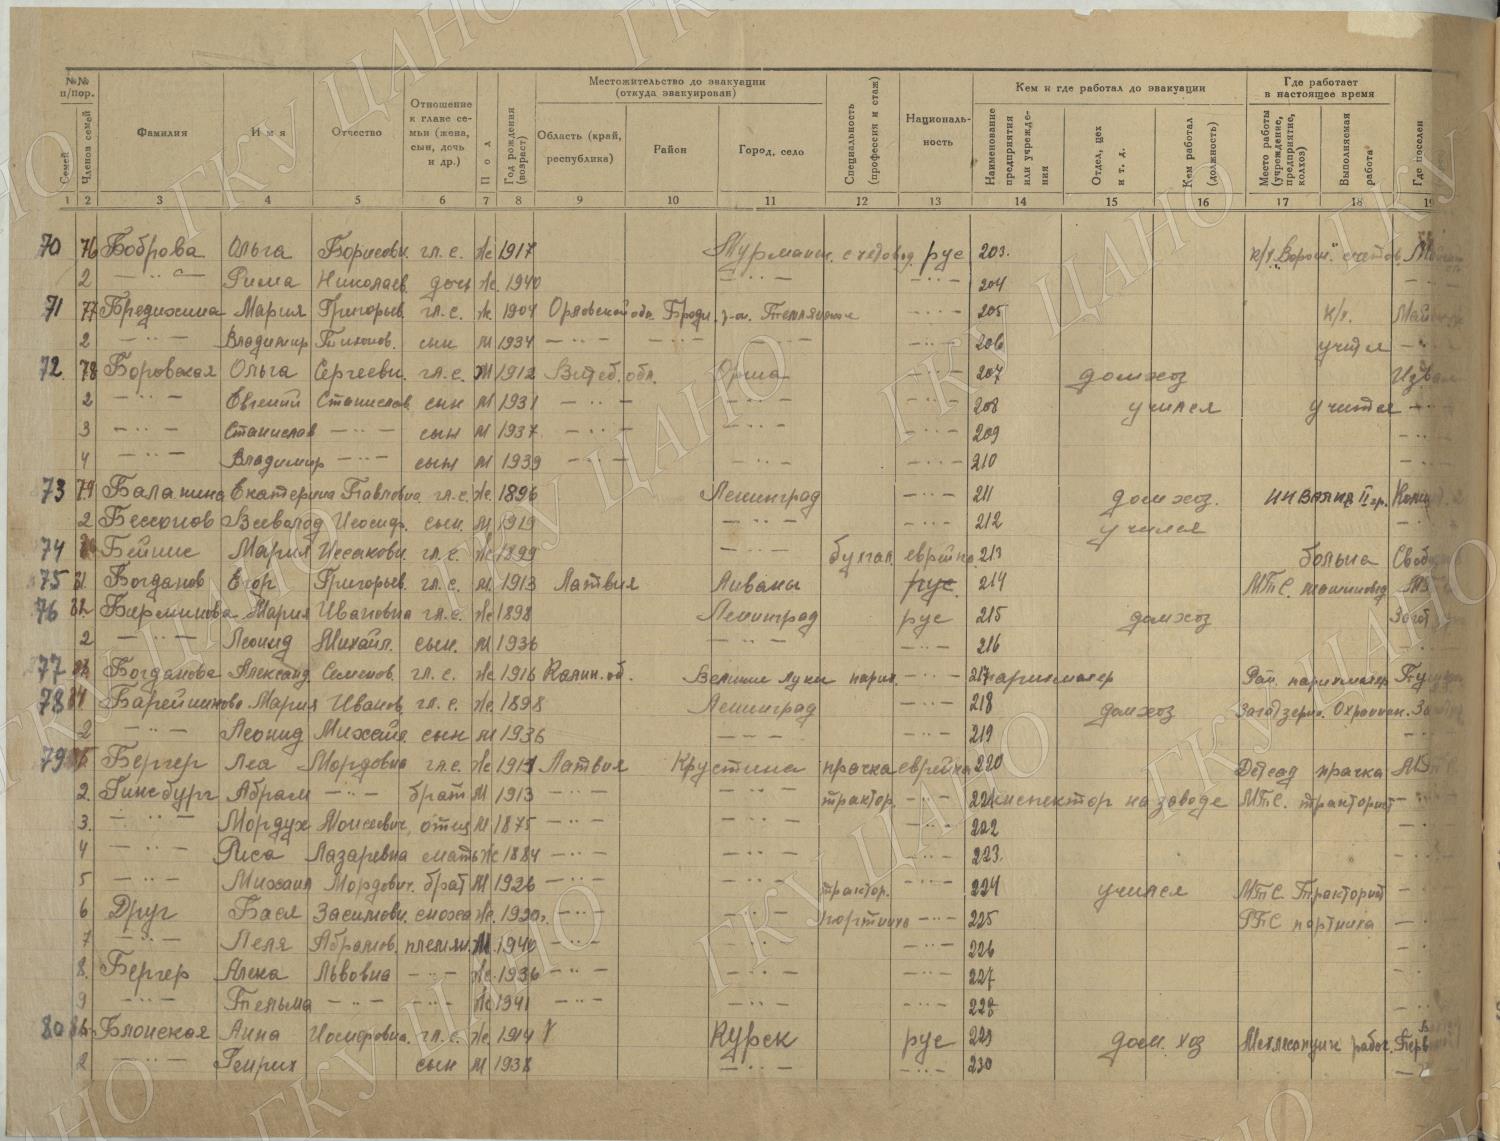 №№ п/пор. Местожительство до эвакуации (откуда эвакуирован) Кем и где работал до эвакуации Где работает в настоящее время
Семей Членов семей Фамилия Имя Отчество Отношение к главе семьи (жена, сын, дочь и др.) Пол Год рождения (возраст) Область (край, республика) Район Город, село Специальность (профессия и стаж) Национальность Наименование предприятия или учреждения Отдел, цех и т. д. Кем работал (должность) Место работы (учреждение, предприятие, колхоз) Выполняемая работа Где поселен
1 2 3 4 5 6 7 8 9 10 11 12 13 14 15 16 17 18 19
70 76 Боброва Ольга Борисовн. гл. с. Ж 1917 Мурманск. счетовод рус 203.
2 — " — Рима Николаев дочь Ж. 1940 — " — — " — 204
71 77 Бредихина Мария Григорьев. гл. с. Ж 1904 Орловской обл. — " — 205 к/х.
2 — " — Владимир Тихонов. сын М 1934 — " — — " — — " — — " — 206 учится — " —
72. 78 Боровская Ольга Сергеевн. гл. с. Ж 1912 Витеб. обл. Орша — " — 207 домхоз
2 — " — Евгений Станислав. сын М 1931 — " — — " — — " — 208 учился учится — " —
3 — " — Станислав — " — сын М 1937 — " — — " — — " — 209 — " —
4 — " — Владимир — " — сын М 1939 — " — — " — — " — 210 — " —
73 79 Баланина Екатерина Павловна гл. с. Ж. 1896 Ленинград — " — 211 дом хоз. инвалид II гр.
2 Бессонов Всеволод Иосиф. сын. М. 1919 — " — — " — 212 учился
74 Бейнис Мария Иссаковн. гл. с. Ж 1899 — " — бухгал. еврейка 213 больна
75 81 Богданов Егор Григорьев. гл. с. М. 1913 Латвия Ливаны рус. 214 МТС.
76 82 Барминова Мария Ивановна гл. с. Ж. 1898 Ленинград рус 215 домхоз
2 — " — Леонид Михайл. сын. М 1936 — " — — " — 216
77 Богданова Александ. Семенов. гл. с. Ж 1916 Калин. об. Великие Луки парик. — " — 217 парикмахер Рай. парикмахер
78 84 Барейшиново Мария Иванов. гл. с. Ж. 1898 Ленинград — " — 218 домхоз Заготзерно. Охранник.
2 — " — Леонид Михайл. сын М 1936 — — — — " — 219
79 85 Бергер Леа Мордовна гл. с. Ж 1911 Латвия Крустпилс прачка еврейка 220 Детсад прачка МТС
2. Гинсбург Абрам — " — брат М 1913 — " — — " — трактор. — " — 221 инспектор на заводе МТС. тракторист — " —
3. — " — Мордух Моисеевич, отец М 1875 — " — — " — — " — 222
4 — " — Риса Лазаревна мать Ж 1884 — " — — " — — " — 223.
5 — " — Михаил Мордович. брат М 1926 — " — трактор. — " — 224 учился МТС. Тракторист
6 Друг Бася сноха Ж. 1920г. — " — — " — портниха — " — 225 РПС портниха
7 — " — Леля Абрамов. племян. М. 1940 — " — — " — — " — 226
8. Бергер Алека Львовна — " — Ж. 1936 — " — — " — — " — 227
9 — " — Тельма — " — — " — Ж 1941 — " — — " — — " — 228
80 86 Блонская Анна Иосифовна. гл. с. Ж. 1914 Курск рус 229 дом. хоз рабоч.
2 — " — Генрих сын М 1938 — " — — " — 230
ГКУ ЦАНО